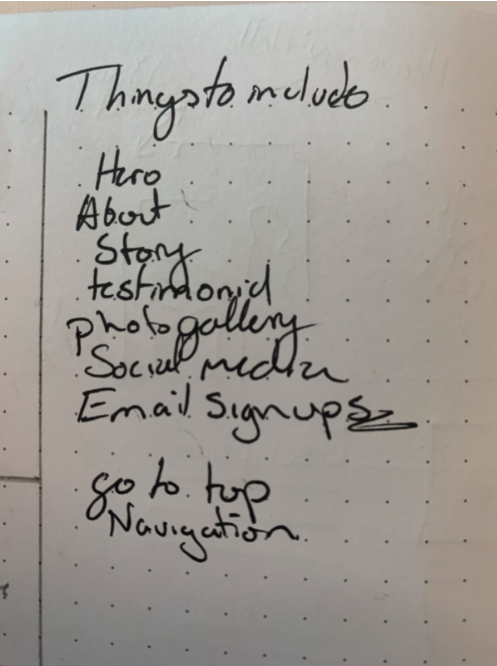 Things to include
Hero
About
Story
testimonial
photo gallery
Social media
Email Signups
go to top
Navigation